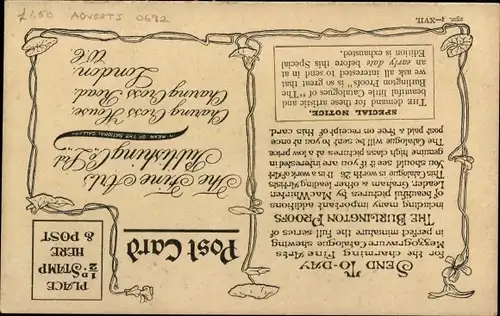 £1.50 ADVERTS 0692
252. 4—XVII.
SEND TO-DAY
for the charming Fine Arts
Mezzogravure Catalogue shewing
in perfect miniature the full series of
THE BURLINGTON PROOFS
including many important additions
of beautiful pictures by MacWhirter,
Leader, Graham & other leading Artists
This Catalogue is worth 2/6 it is a work of Art
You should see it if you are interested in
genuine high class pictures at a low price
The Catalogue will be sent by us at once
post paid & free on receipt of this card
SPECIAL NOTICE.
THE demand for these artistic and
beautiful little Catalogues of "The
Burlington Proofs" is so great that
we ask all interested to send in at
an early date before this Special
Edition is exhausted.
Post Card
PLACE
½D. STAMP
HERE
& POST
The Fine Arts
Publishing Co. Ltd.
IN REAR OF THE NATIONAL GALLERY
Charing Cross House
Charing Cross Road
London.
W.C.